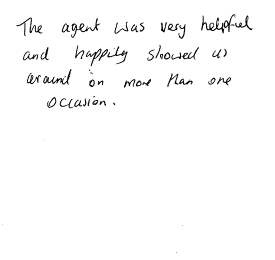 The agent was very helpful
and happily showed us
around on more than one
occasion.